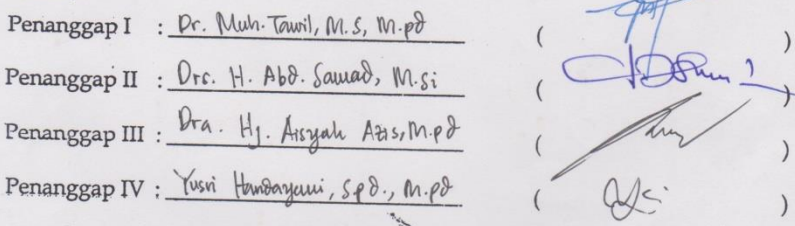 Penanggap I : Dr. Muh. Tawil, M.S, M.pd ( )
Penanggap II : Drs. H. Abd. Samad, M.Si ( )
Penanggap III : Dra. Hj. Aisyah Azis, M.pd ( )
Penanggap IV : Yusri Handayani, S.pd., M.pd ( )